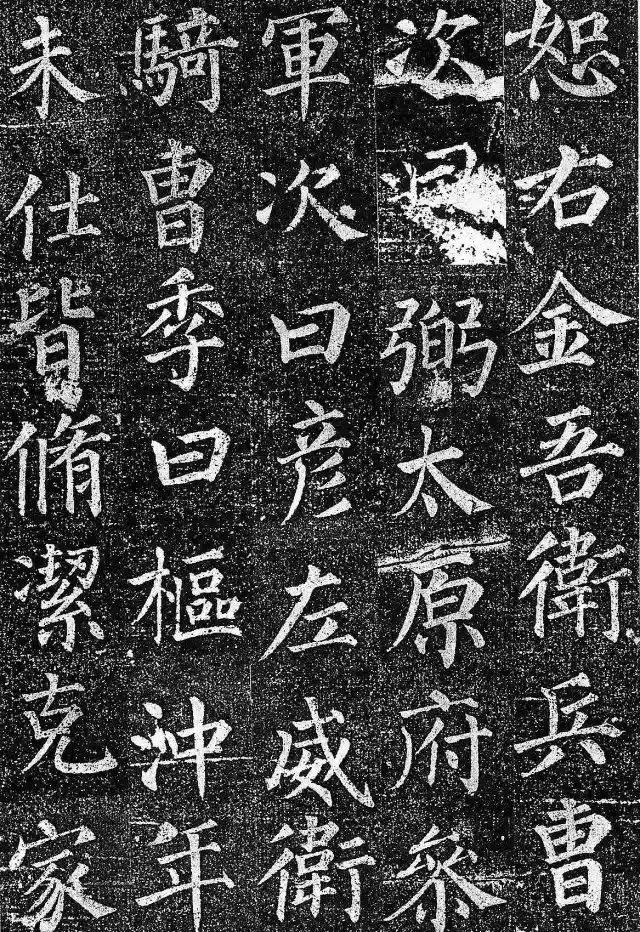 恕右金吾衛兵曹
次曰弼太原府叅
軍次曰彥左威衛
騎曹季曰樞沖年
未仕皆脩潔克家